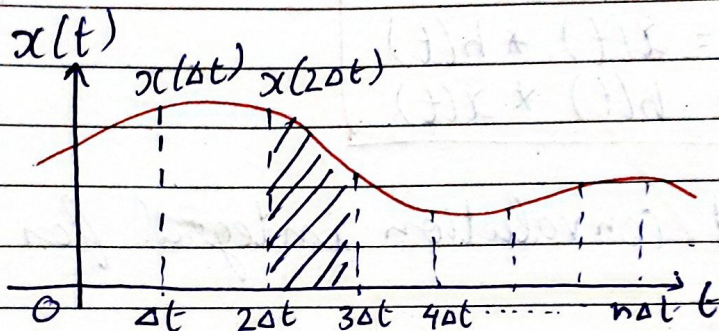 x(t)
x(Δt) x(2Δt)
0 Δt 2Δt 3Δt 4Δt ........ nΔt t